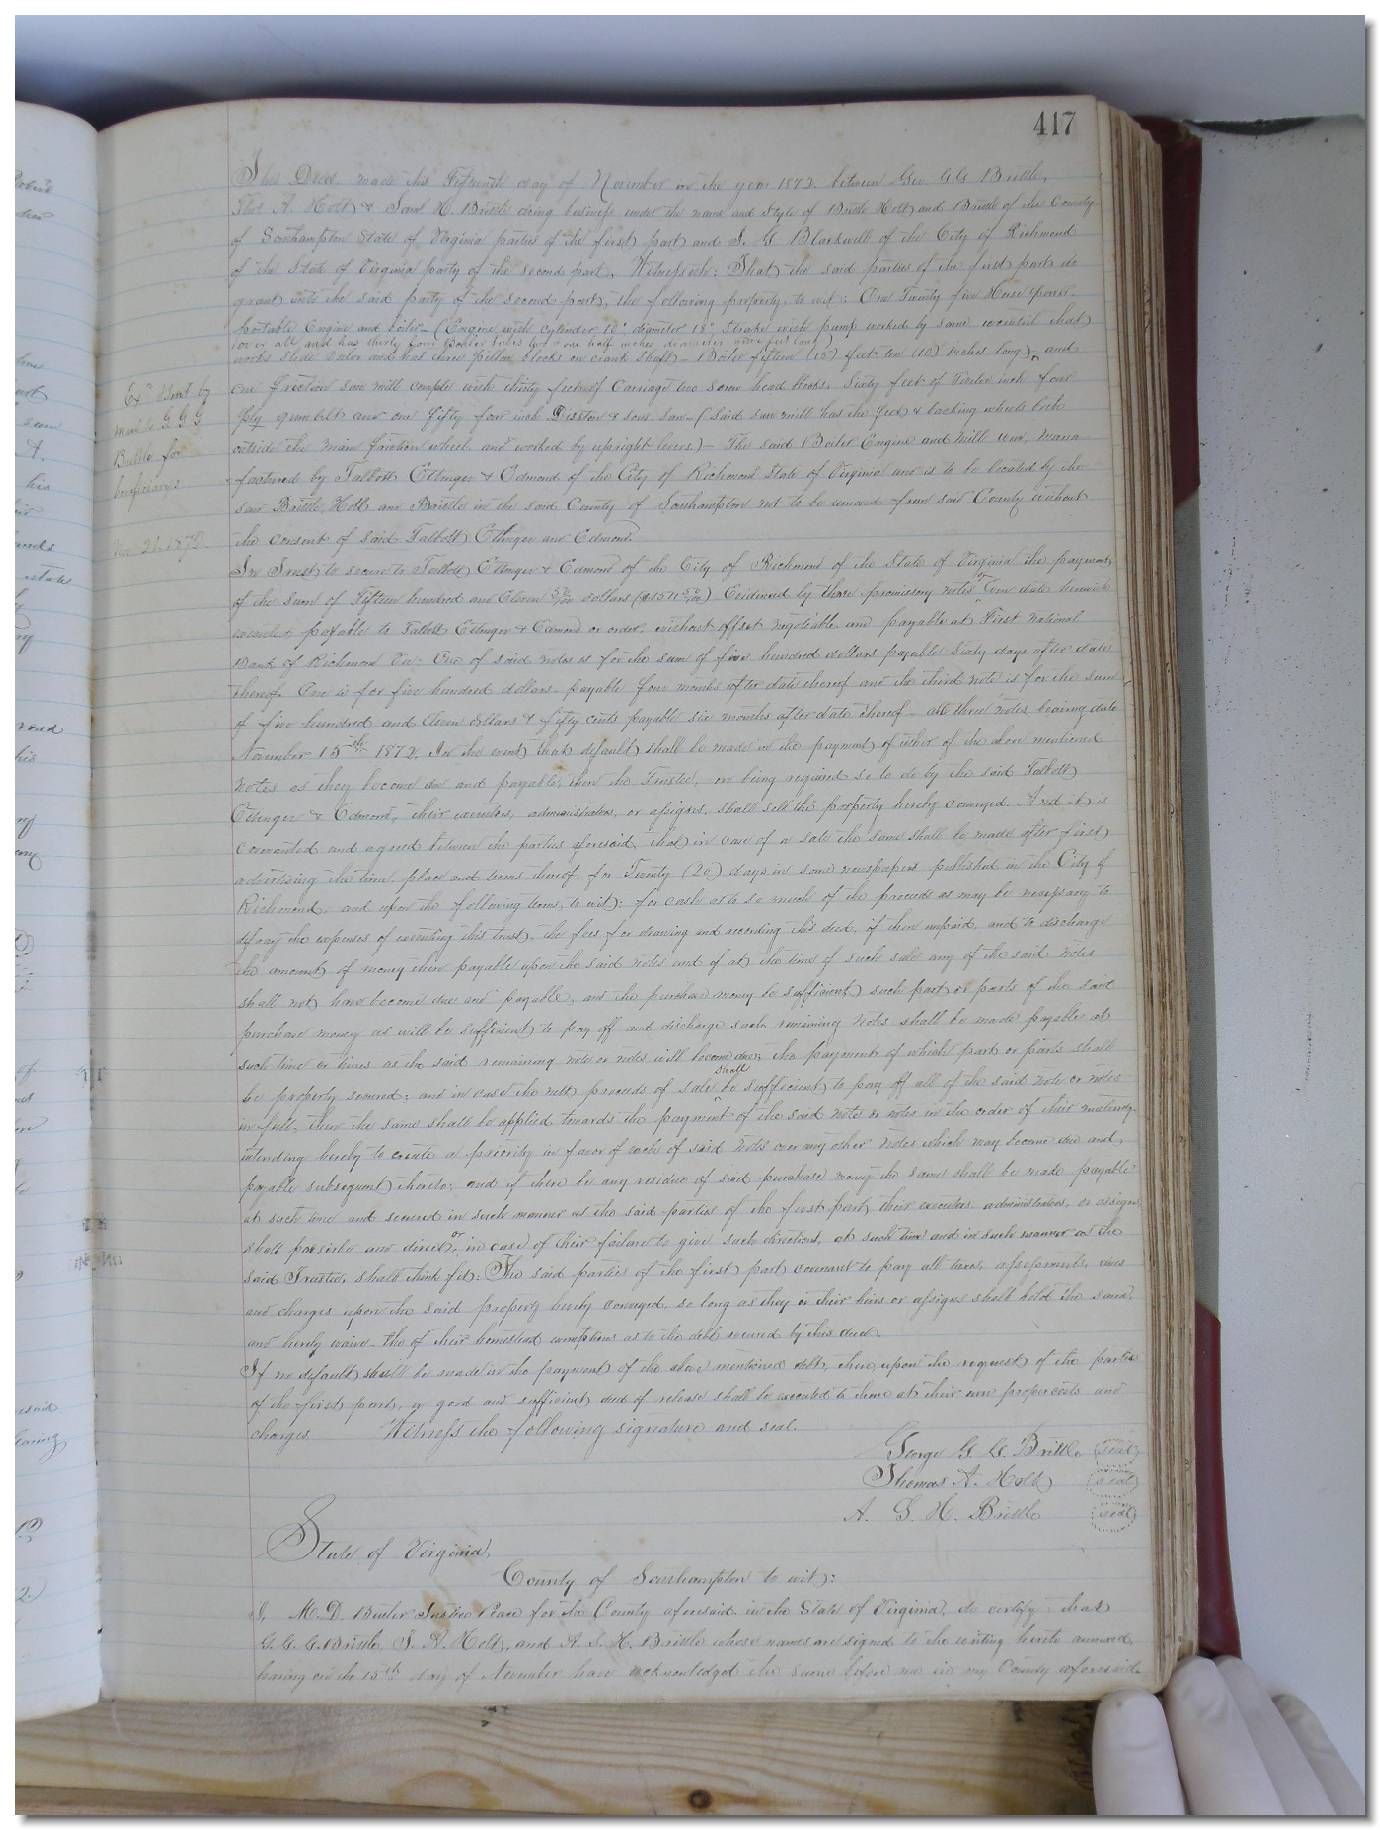 417
This Deed made this Fifteenth day of November in the year 1872 between Geo. G. G. Brittle,
Thos A. Holt & Saml H. Brittle doing business under the name and style of Brittle Holt and Brittle of the County
of Southampton State of Virginia parties of the first part and J. G. Blackwell of the City of Richmond
of the State of Virginia party of the second part, Witnesseth: That the said parties of the first part do
grant unto the said party of the second part, the following property, to wit: One Twenty five Horse power
portable Engine and boiler (Engine with cylinder 10" diameter 18" stroke with pump worked by same
over all and has thirty four Boiler tubes one half inches diameter feet long)
works slide valve and has three pillow blocks on crank shaft - Boiler fifteen (15) feet ten (10) inches long) and
one friction saw mill complete with thirty feet of Carriage two saw head blocks, sixty feet of Twelve inch four
ply gum belt and one fifty four inch Disston & sons saw - (said saw mill has the feed & backing wheels both
outside the main friction wheel and worked by upright levers) - The said Boiler Engine and mill were manu
factured by Talbott Ettenger & Edmond of the City of Richmond State of Virginia and is to be located by the
said Brittle, Holt and Brittle in the said County of Southampton not to be removed from said County without
the consent of said Talbott Ettenger and Edmond.
Exd & sent by
mail to G. G. G
Brittle for
beneficiary
Nov 21. 1872
In Trust to secure to Talbott Ettenger & Edmond of the City of Richmond of the State of Virginia the payment
of the sum of Fifteen hundred and Eleven 50/100 dollars ($1511 50/100) Evidenced by three promissory notes of even date herewith
executed payable to Talbott Ettenger & Edmond or order, without offset negotiable and payable at First National
Bank of Richmond Va: One of said notes is for the sum of five hundred dollars payable sixty days after date
thereof. One is for five hundred dollars payable four months after date thereof and the third note is for the sum
of five hundred and Eleven dollars & fifty cents payable six months after date thereof - all three notes bearing date
November 15th 1872. In the event that default shall be made in the payment of either of the above mentioned
notes as they become due and payable, then the Trustee, on being required so to do by the said Talbott
Ettenger & Edmond, their executors, administrators, or assigns, shall sell the property hereby conveyed. And it is
covenanted and agreed between the parties aforesaid, that in case of a sale the same shall be made after first
advertising the time, place and terms thereof for Twenty (20) days in some newspapers published in the City of
Richmond, and upon the following terms, to wit: for cash as to so much of the proceeds as may be necessary to
defray the expenses of executing this trust, the fees for drawing and recording this deed, if then unpaid, and to discharge
the amount of money then payable upon the said notes and if at the time of such sale any of the said notes
shall not have become due and payable, and the purchase money be sufficient) such part or parts of the said
purchase money as will be sufficient to pay off and discharge such remaining notes shall be made payable at
such time or times as the said remaining note or notes will become due; the payment of which part or parts shall
shall
be properly secured; and in case the nett proceeds of sale be sufficient to pay off all of the said note or notes
in full, then the same shall be applied towards the payment of the said note or notes in the order of their maturity,
intending hereby to create a priority in favor of each of said notes over any other notes which may become due and
payable subsequent thereto; and if there be any residue of said purchase money the same shall be made payable
at such time and secured in such manner as the said parties of the first part, their executors administrators, or assigns,
shall prescribe and direct, or in case of their failure to give such direction, at such time and in such manner as the
said Trustee, shall think fit. The said parties of the first part covenant to pay all taxes, assessments, dues
and charges upon the said property hereby conveyed, so long as they or their heirs or assigns shall hold the same,
and hereby waive the of their homestead exemptions as to the debt secured by this deed.
If no default shall be made in the payment of the above mentioned debt, then upon the request of the parties
of the first part, a good and sufficient deed of release shall be executed to them at their own proper costs and
charges. Witness the following signature and seal.
George G. G. Brittle (seal)
Thomas A. Holt (seal)
A. S. H. Brittle (seal)
State of Virginia,
County of Southampton to wit):
I, M. D. Butler Justice Peace for the County aforesaid in the State of Virginia, do certify that
G. G. G. Brittle, T. A. Holt, and A. S. H. Brittle whose names are signed to the writing hereto annexed,
bearing on the 15th day of November have acknowledged the same before me in my County aforesaid.